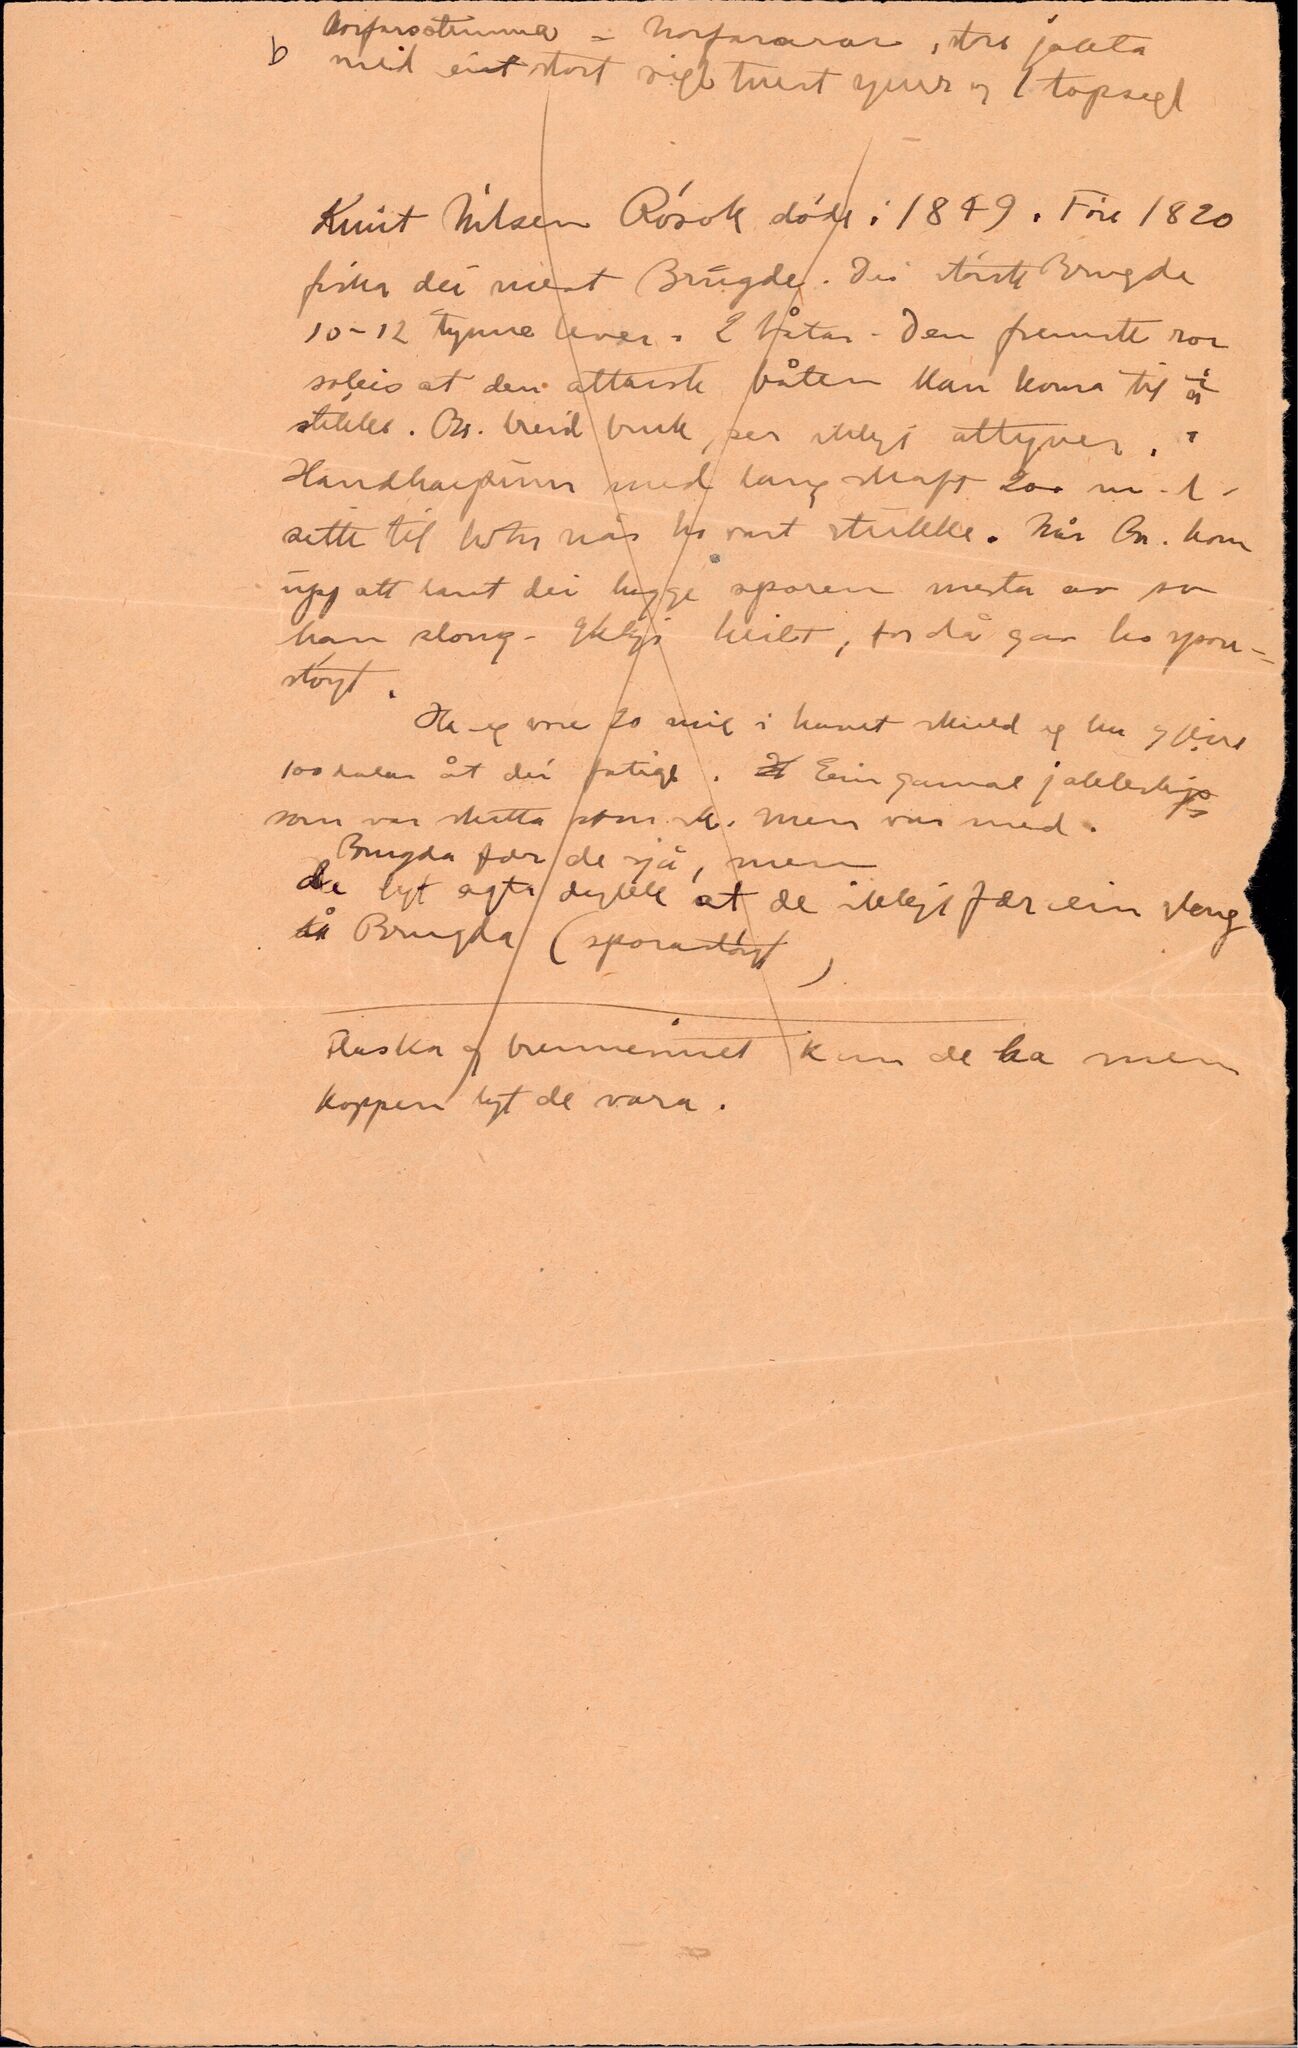 b Norfarstemna = Norfararar, store jakta
med eit stort sigl tvert yver og 1 topsegl
Knut Nilsen Rósok døde i 1849. Före 1820
fiska dei mest Brugde. Dei störste Brugde
10-12 tynne lever. 2 båtar - Den fremste ror
soleis at den attarste båten kan koma til å
stikke. Br. breid bruk, ser ikkje attyver.
Handharpun med lang skaft 200 m.
sette til botns når ho vart stukke. Når Br. kom
upp att laut dei hogge sporen mesta av so
han slong - Ikkje heilt, for då gav ho spor-
støyt.
Ha eg vore 20 mil i havet skuld eg ha gjeve
100 dalar åt dei fatige. Ein gamal jakteskip
som var skutta men var med.
Brugda fær de sjå, men
de lyt agta dykk at de ikkje fær ein sleng
tå Brugda (sporastöyt)
Flaska og brennevinet kan de ha men
koppen lyt de vara.